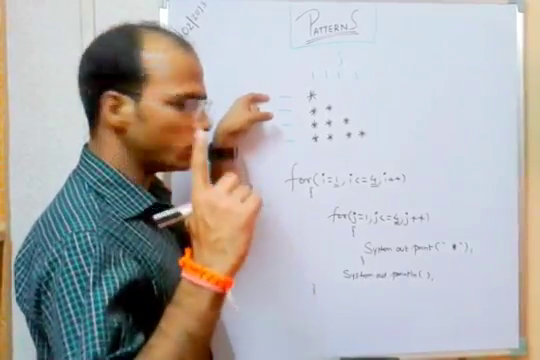 02/2013
PATTERNS
j
*
* *
* * *
* * * *
for(i=1,i<=4,i++)
{
for(j=1,j<=4,j++)
{
System out print(" *"),
}
System out println(),
}